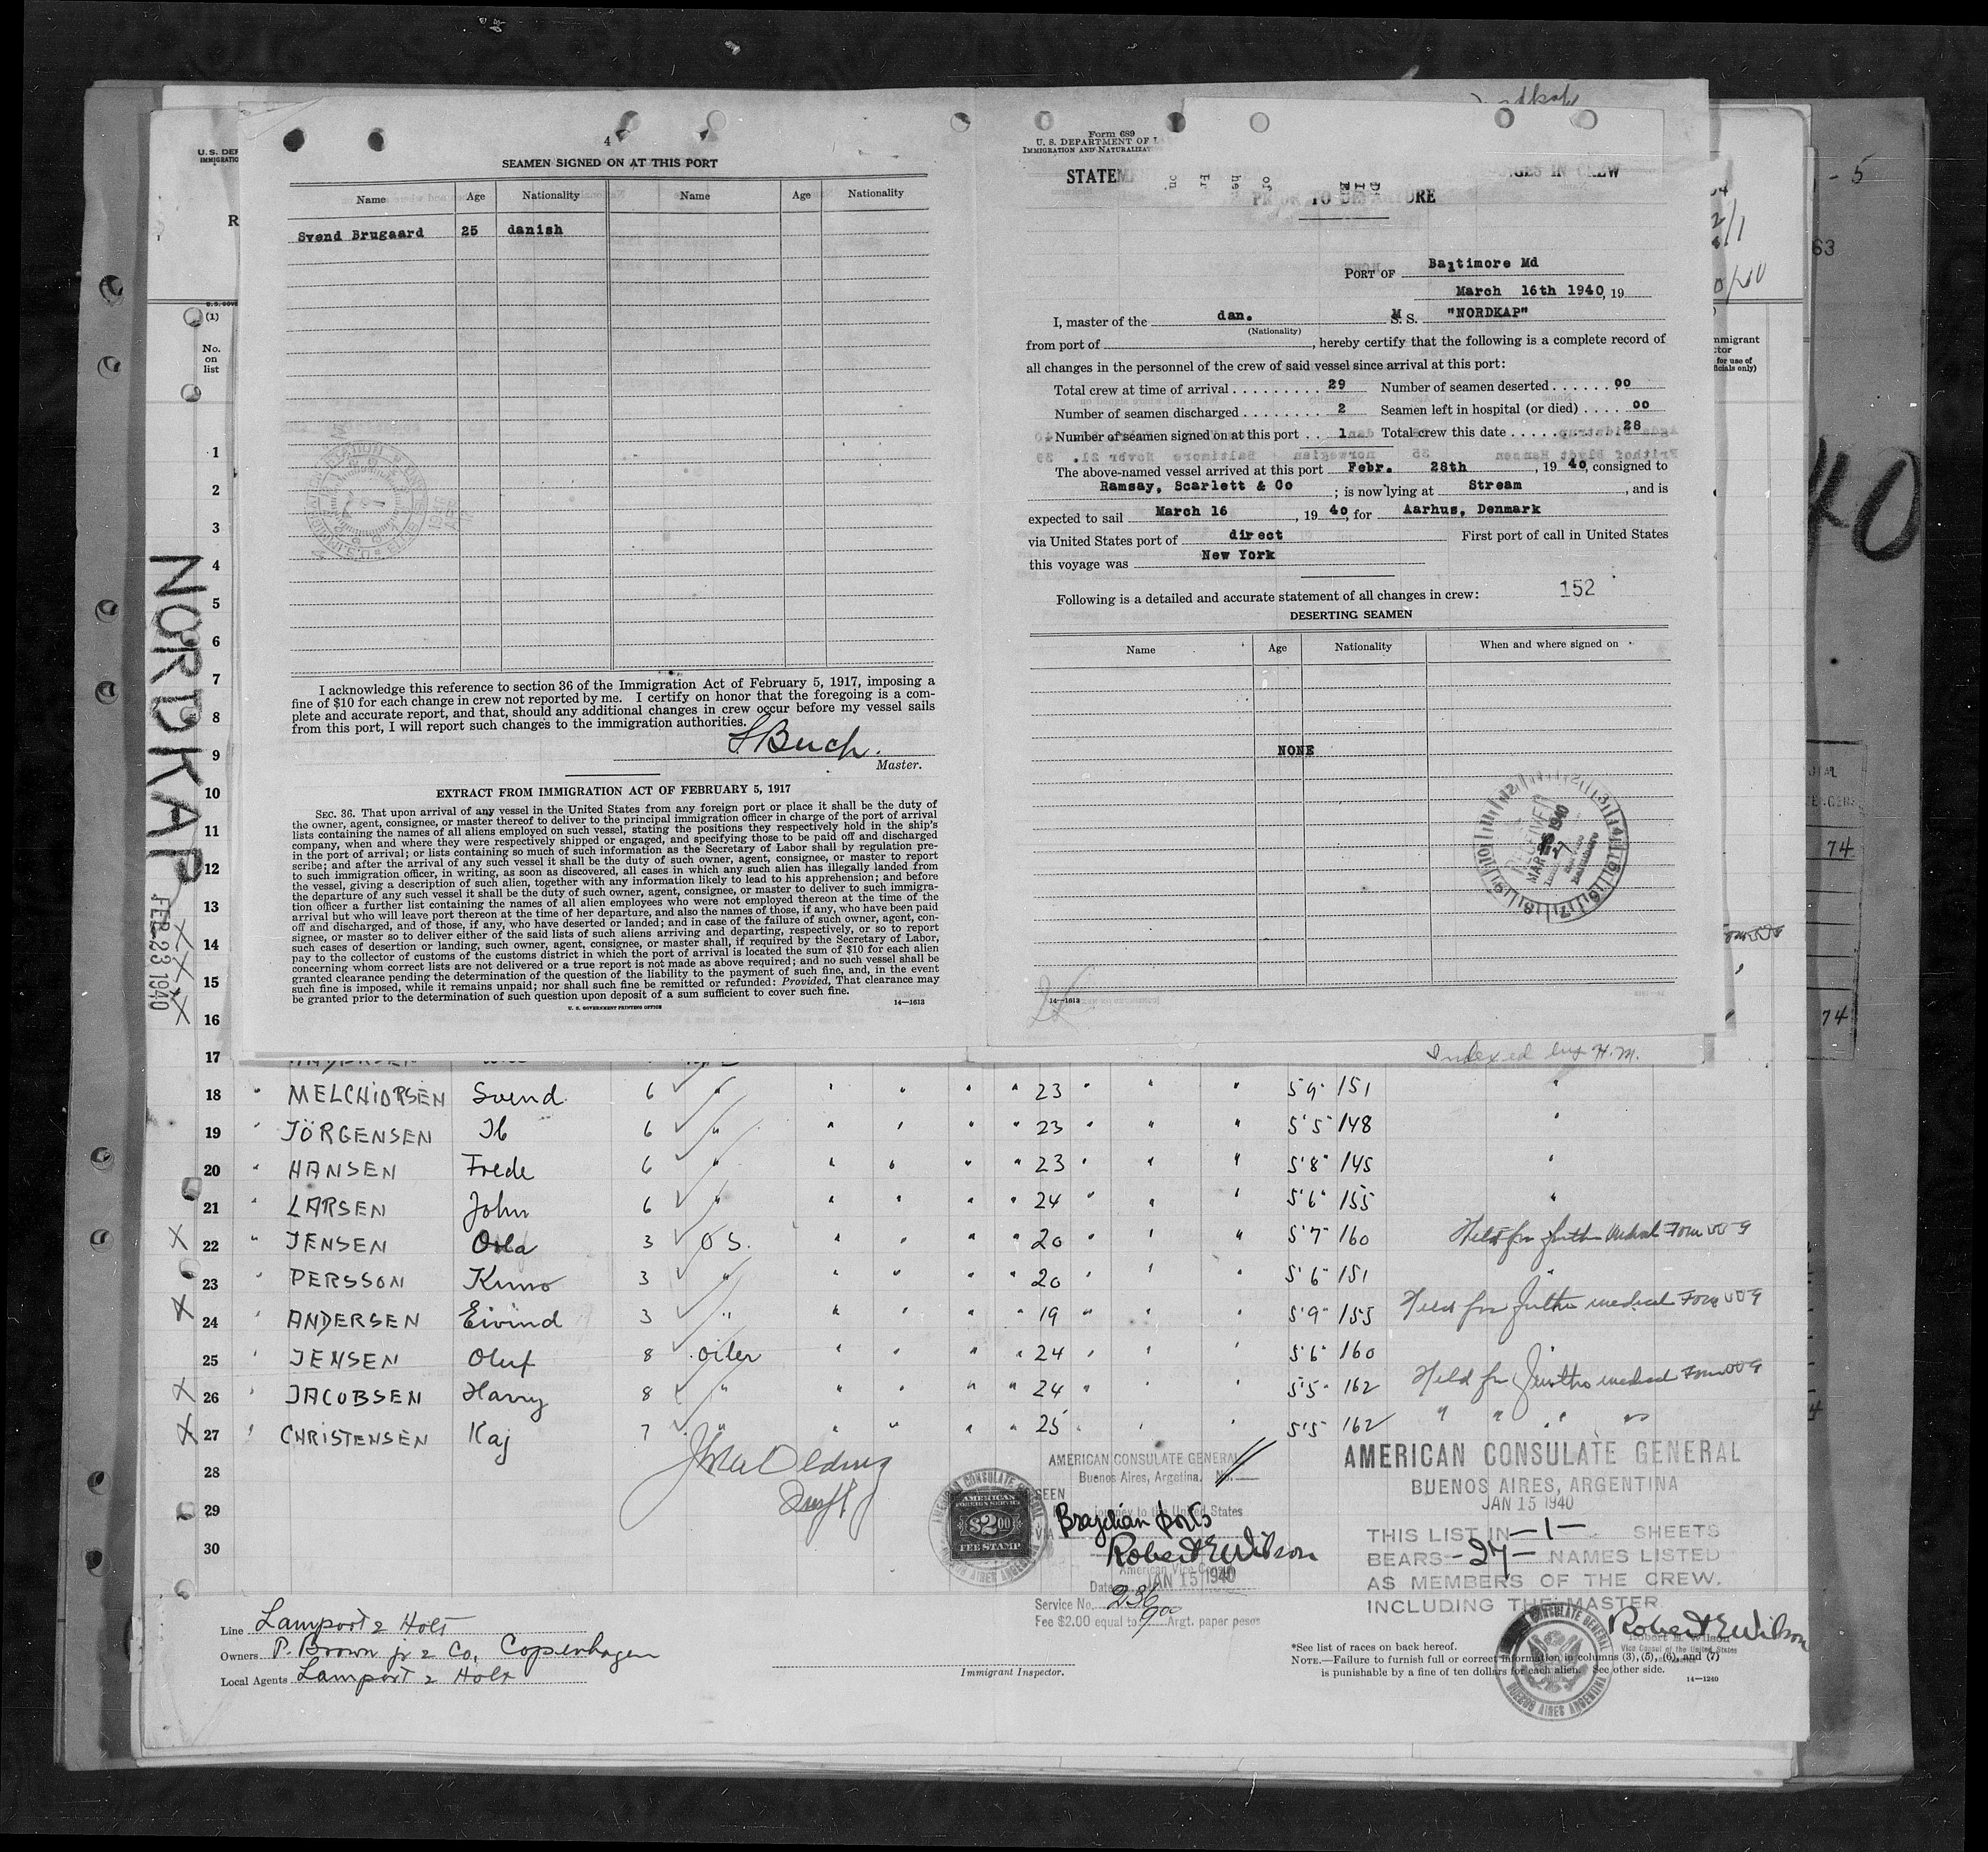 4
SEAMEN SIGNED ON AT THIS PORT
Name Age Nationality Name Age Nationality
Svend Brugaard 25 danish
I acknowledge this reference to section 36 of the Immigration Act of February 5, 1917, imposing a
fine of $10 for each change in crew not reported by me. I certify on honor that the foregoing is a com-
plete and accurate report, and that, should any additional changes in crew occur before my vessel sails
from this port, I will report such changes to the immigration authorities.
Master.
EXTRACT FROM IMMIGRATION ACT OF FEBRUARY 5, 1917
SEC. 36. That upon arrival of any vessel in the United States from any foreign port or place it shall be the duty of
the owner, agent, consignee, or master thereof to deliver to the principal immigration officer in charge of the port of arrival
lists containing the names of all aliens employed on such vessel, stating the positions they respectively hold in the ship's
company, when and where they were respectively shipped or engaged, and specifying those to be paid off and discharged
in the port of arrival; or lists containing so much of such information as the Secretary of Labor shall by regulation pre-
scribe; and after the arrival of any such vessel it shall be the duty of such owner, agent, consignee, or master to report
to such immigration officer, in writing, as soon as discovered, all cases in which any such alien has illegally landed from
the vessel, giving a description of such alien, together with any information likely to lead to his apprehension; and before
the departure of any such vessel it shall be the duty of such owner, agent, consignee, or master to deliver to such immigra-
tion officer a further list containing the names of all alien employees who were not employed thereon at the time of the
arrival but who will leave port thereon at the time of her departure, and also the names of those, if any, who have been paid
off and discharged, and of those, if any, who have deserted or landed; and in case of the failure of such owner, agent, con-
signee, or master so to deliver either of the said lists of such aliens arriving and departing, respectively, or so to report
such cases of desertion or landing, such owner, agent, consignee, or master shall, if required by the Secretary of Labor,
pay to the collector of customs of the customs district in which the port of arrival is located the sum of $10 for each alien
concerning whom correct lists are not delivered or a true report is not made as above required; and no such vessel shall be
granted clearance pending the determination of the question of the liability to the payment of such fine, and, in the event
such fine is imposed, while it remains unpaid; nor shall such fine be remitted or refunded: Provided, That clearance may
be granted prior to the determination of such question upon deposit of a sum sufficient to cover such fine.
U. S. GOVERNMENT PRINTING OFFICE 14—1613
Form 689
U. S. DEPARTMENT OF
IMMIGRATION AND NATURALIZAT
STATEM GES IN CREW
PRIOR TO DEPARTURE
PORT OF Baltimore Md
March 16th 1940, 19
I, master of the dan. M S. "NORDKAP"
(Nationality)
from port of , hereby certify that the following is a complete record of
all changes in the personnel of the crew of said vessel since arrival at this port:
Total crew at time of arrival 29 Number of seamen deserted 00
Number of seamen discharged 2 Seamen left in hospital (or died) 00
Number of seamen signed on at this port 1 Total crew this date 28
The above-named vessel arrived at this port Febr. 28th , 19 40, consigned to
Ramsay, Scarlett & Co ; is now lying at Stream , and is
expected to sail March 16 , 19 40, for Aarhus, Denmark
via United States port of direct First port of call in United States
this voyage was New York
Following is a detailed and accurate statement of all changes in crew: 152
DESERTING SEAMEN
Name Age Nationality When and where signed on
NONE
14—1613
Indexed by H.M.
NORDKAP
FEB 23 1940
(1)
No.
on
list
1
2
3
4
5
6
7
8
9
10
11
12
13
14
15
16
17
18 " MELCHIORSEN Svend 6 " " " " " 23 " " " 5'9" 151 "
19 " JÖRGENSEN Ib 6 " " " " " 23 " " " 5'5" 148 "
20 " HANSEN Frede 6 " " " " " 23 " " " 5'8" 145 "
21 " LARSEN John 6 " " " " " 24 " " " 5'6" 155 "
X 22 " JENSEN Orla 3 O S. " " " " 20 " " " 5'7" 160 Held for further medical
23 " PERSSON Kuno 3 " " " " " 20 " " " 5'6" 151 "
X 24 " ANDERSEN Eivind 3 " " " " " 19 " " " 5'9" 155 Held for further medical
25 " JENSEN Oluf 8 oiler " " " " 24 " " " 5'6" 160 "
X 26 " JACOBSEN Harry 8 " " " " " 24 " " " 5'5" 162 Held for further medical
X 27 " CHRISTENSEN Kaj 7 " " " " " 25 " " " 5'5" 162 " " " "
28
29
30
AMERICAN CONSULATE GENERAL
Buenos Aires, Argetina. No.
SEEN
journey to the United States
VIA Brazilian ports
Robert E Wilson
American Vice Consul
Date JAN 15 1940
Service No. 236
Fee $2.00 equal to 9.00 Argt. paper pesos
AMERICAN
FOREIGN SERVICE
$2.00
FEE STAMP
AMERICAN CONSULATE GENERAL
BUENOS AIRES, ARGENTINA
JAN 15 1940
THIS LIST IN —1— SHEETS
BEARS —27— NAMES LISTED
AS MEMBERS OF THE CREW.
INCLUDING THE MASTER.
Robert E Wilson
Robert E. Wilson
Vice Consul of the United States
Line Lamport & Holt
Owners P. Brown jr & Co, Copenhagen
Local Agents Lamport & Holt
Immigrant Inspector.
*See list of races on back hereof.
NOTE.—Failure to furnish full or correct information in columns (3), (5), (6), and (7)
is punishable by a fine of ten dollars for each alien. See other side.
14—1240